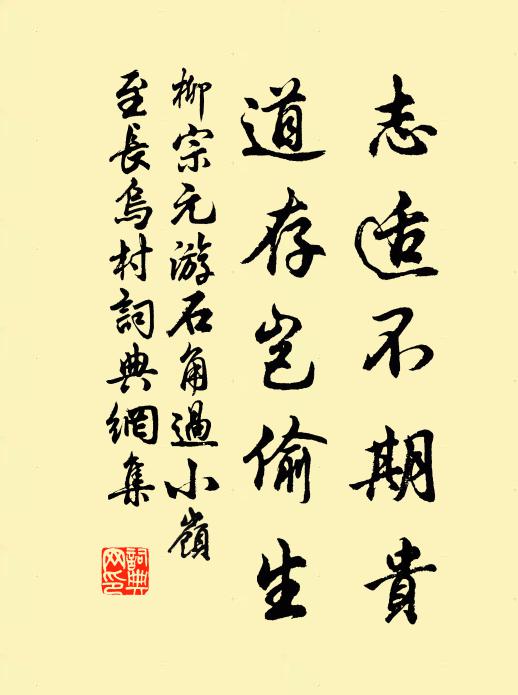 志适不期貴
道存岂偷生
柳宗元游石角過小嶺
至長烏村詞典網集
詞典網印